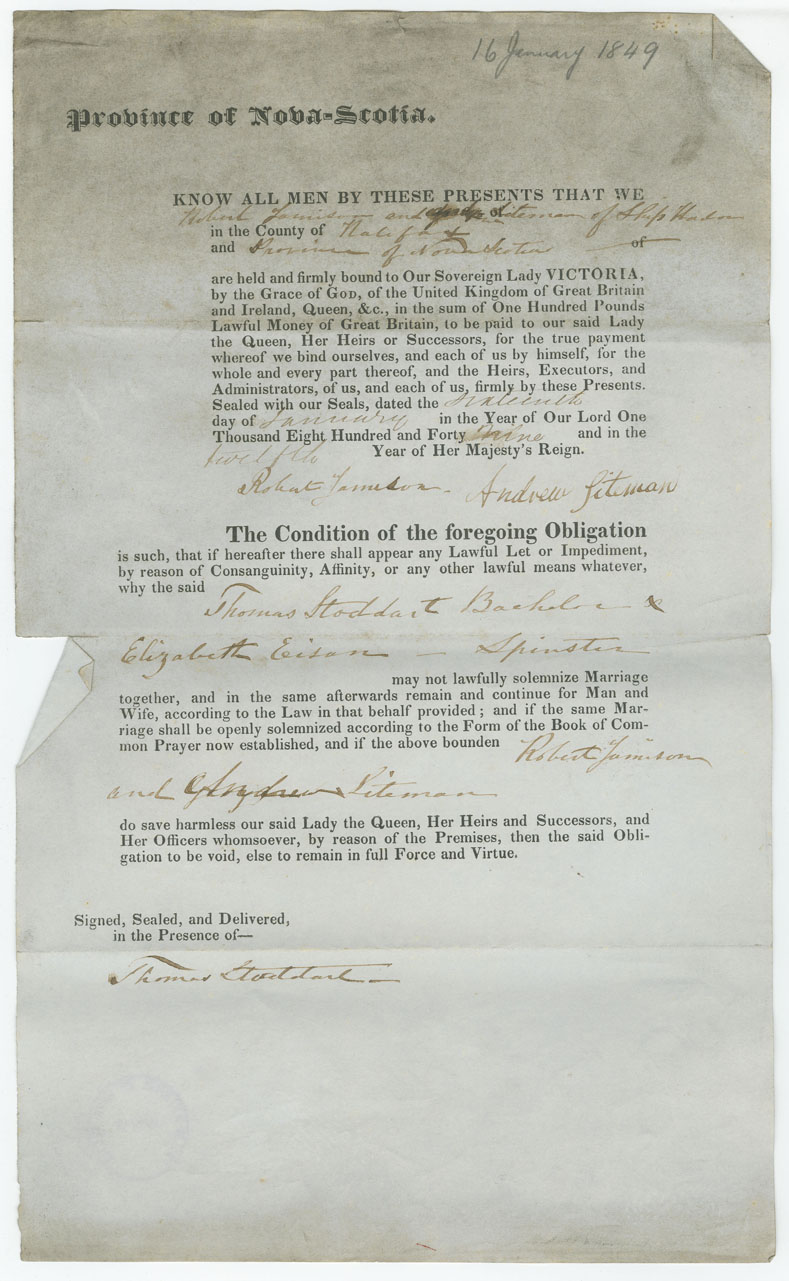 16 January 1849
Province of Nova-Scotia.
KNOW ALL MEN BY THESE PRESENTS THAT WE
Robert Jamison and Siteman of Ship Harbor
in the County of Halifax
and Province of Nova Scotia of
are held and firmly bound to Our Sovereign Lady VICTORIA,
by the Grace of GOD, of the United Kingdom of Great Britain
and Ireland, Queen, &c., in the sum of One Hundred Pounds
Lawful Money of Great Britain, to be paid to our said Lady
the Queen, Her Heirs or Successors, for the true payment
whereof we bind ourselves, and each of us by himself, for the
whole and every part thereof, and the Heirs, Executors, and
Administrators, of us, and each of us, firmly by these Presents.
Sealed with our Seals, dated the Sixteenth
day of January in the Year of Our Lord One
Thousand Eight Hundred and Forty Nine and in the
twelfth Year of Her Majesty's Reign.
Robert Jameson - Andrew Siteman
The Condition of the foregoing Obligation
is such, that if hereafter there shall appear any Lawful Let or Impediment,
by reason of Consanguinity, Affinity, or any other lawful means whatever,
why the said
Thomas Stoddart Bachelor &
Elizabeth Eisan — Spinster
may not lawfully solemnize Marriage
together, and in the same afterwards remain and continue for Man and
Wife, according to the Law in that behalf provided ; and if the same Mar-
riage shall be openly solemnized according to the Form of the Book of Com-
mon Prayer now established, and if the above bounden Robert Jamison
and Andrew Siteman
do save harmless our said Lady the Queen, Her Heirs and Successors, and
Her Officers whomsoever, by reason of the Premises, then the said Obli-
gation to be void, else to remain in full Force and Virtue.
Signed, Sealed, and Delivered,
in the Presence of—
Thomas Stoddart —